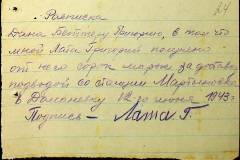 24
Расписка
Дана Беттхеру Генриху, в том что
мной Лата Григорий получено
от него сорок марок за доставку
подводой со станции Мартыновка
в Доманевку 12го июня 1943г
Подпись – Лата Г.